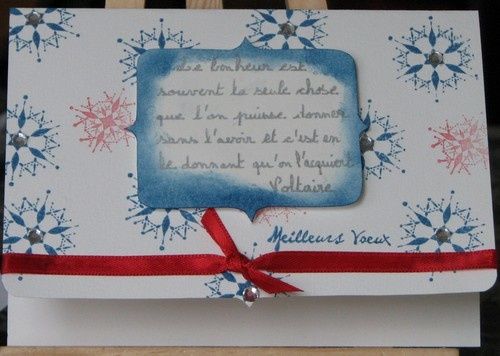 Le bonheur est
souvent la seule chose
que l'on puisse donner
sans l'avoir et c'est en
le donnant qu'on l'acquiert
Voltaire
Meilleurs Voeux